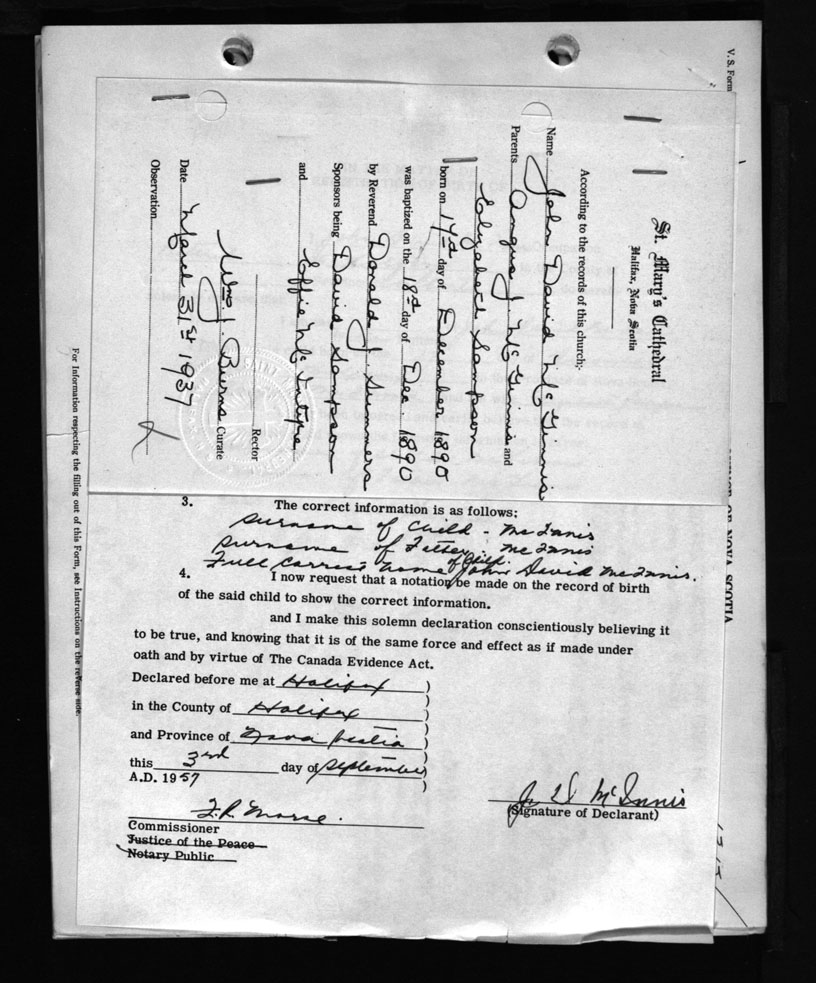 V. S. Form
St. Mary's Cathedral
Halifax, Nova Scotia
According to the records of this church;
Name John David McGinnis
Parents Angus J. McGinnis and
Elizabeth Sampson
born on 14th day of December 1890
was baptized on the 18th day of Dec. 1890
by Reverend Donald J. Summers
Sponsors being David Sampson
and Effie McIntyre
Rector
Wm. J. Burns Curate
Date March 31st 1937
Observation
For Information respecting the filling out of this Form, see Instructions on the reverse side.
OF NOVA SCOTIA
3. The correct information is as follows:
Surname of Child - McInnis
Surname of Father - McInnis
of Child.
Full correct name John David McInnis.
4. I now request that a notation be made on the record of birth
of the said child to show the correct information.
and I make this solemn declaration conscientiously believing it
to be true, and knowing that it is of the same force and effect as if made under
oath and by virtue of The Canada Evidence Act.
Declared before me at Halifax )
in the County of Halifax )
and Province of Nova Scotia )
this 3rd day of September )
A.D. 1957 )
J. D. McInnis
(Signature of Declarant)
F. R. Morse.
Commissioner
Justice of the Peace
Notary Public